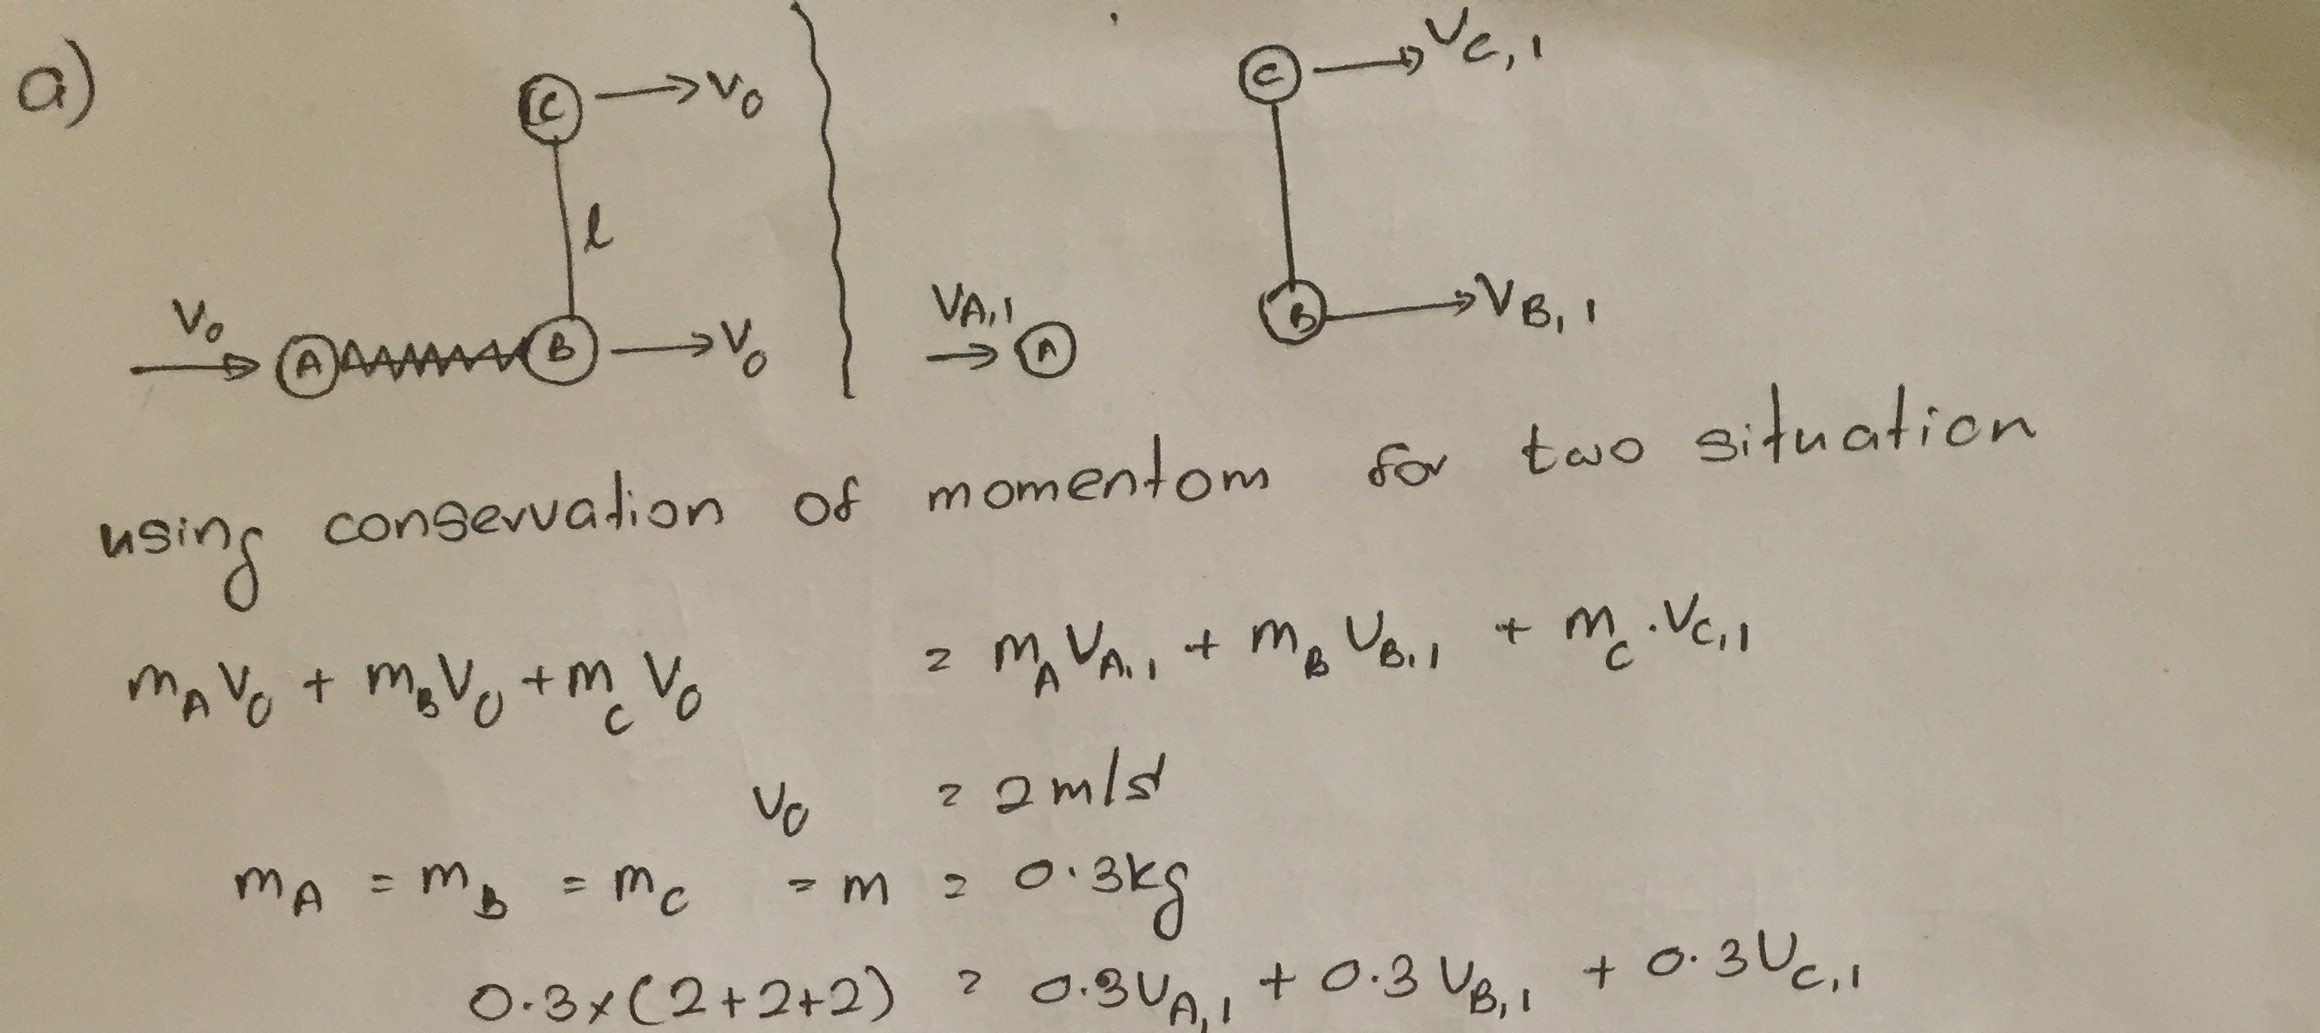 a)
C → V0
V0 → A B → V0
l
C → VC,1
VA,1 → A
B → VB,1
using conservation of momentom for two situation
mA V0 + mB V0 + mC V0 = mA VA,1 + mB VB,1 + mC . VC,1
V0 = 2 m/s
mA = mB = mC = m = 0.3kg
0.3 x (2+2+2) = 0.3 VA,1 + 0.3 VB,1 + 0.3 VC,1